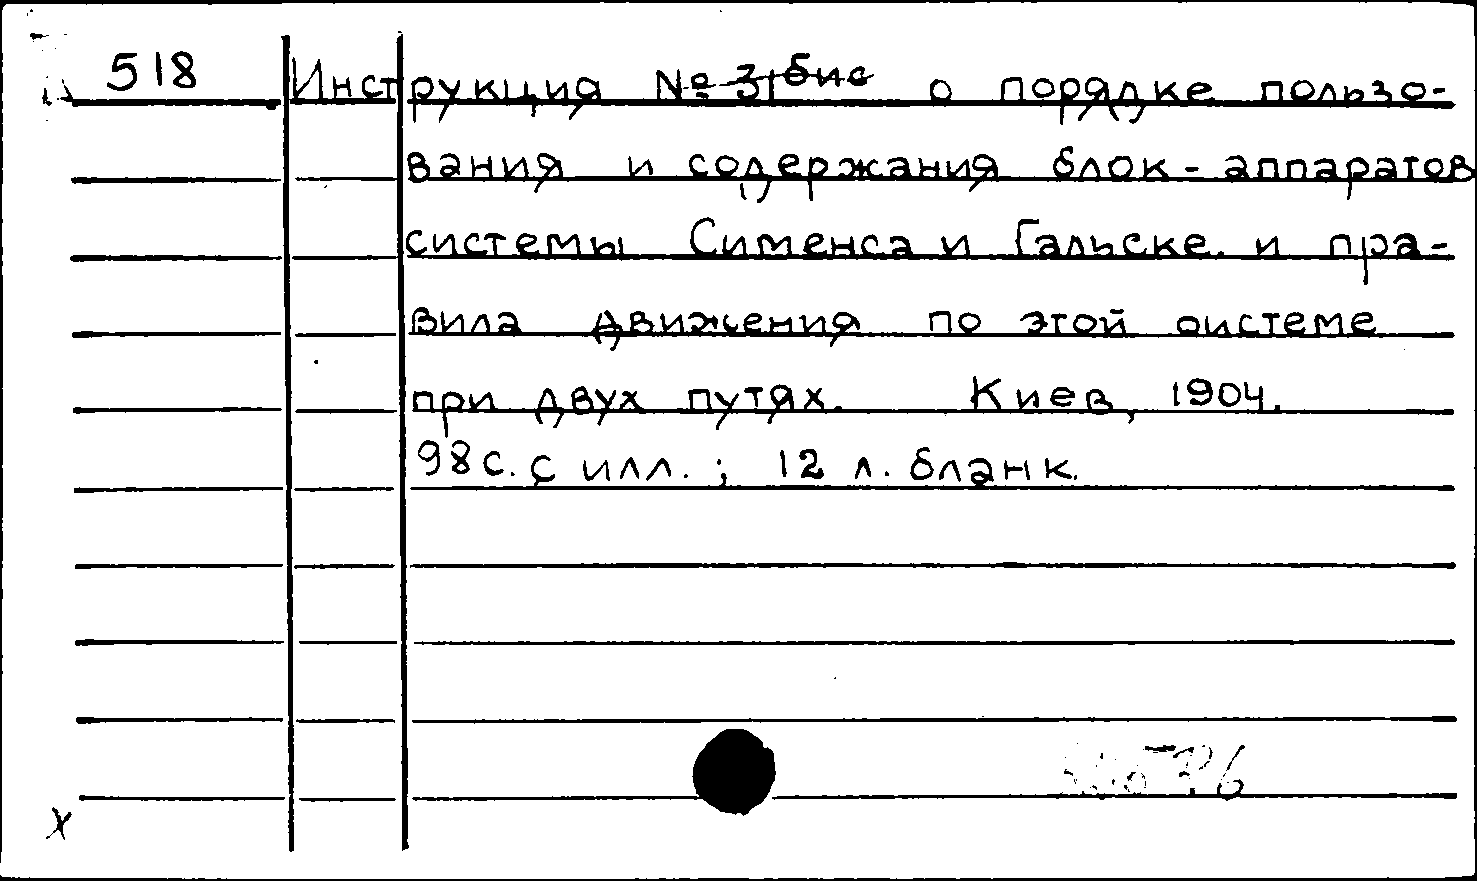 518 Инструкция № 31 бис о порядке пользо-
вания и содержания блок-аппаратов
системы Сименса и Гальске и пра-
вила движения по этой системе
при двух путях. Киев, 1904.
98с. с илл. ; 12 л. бланк.
х